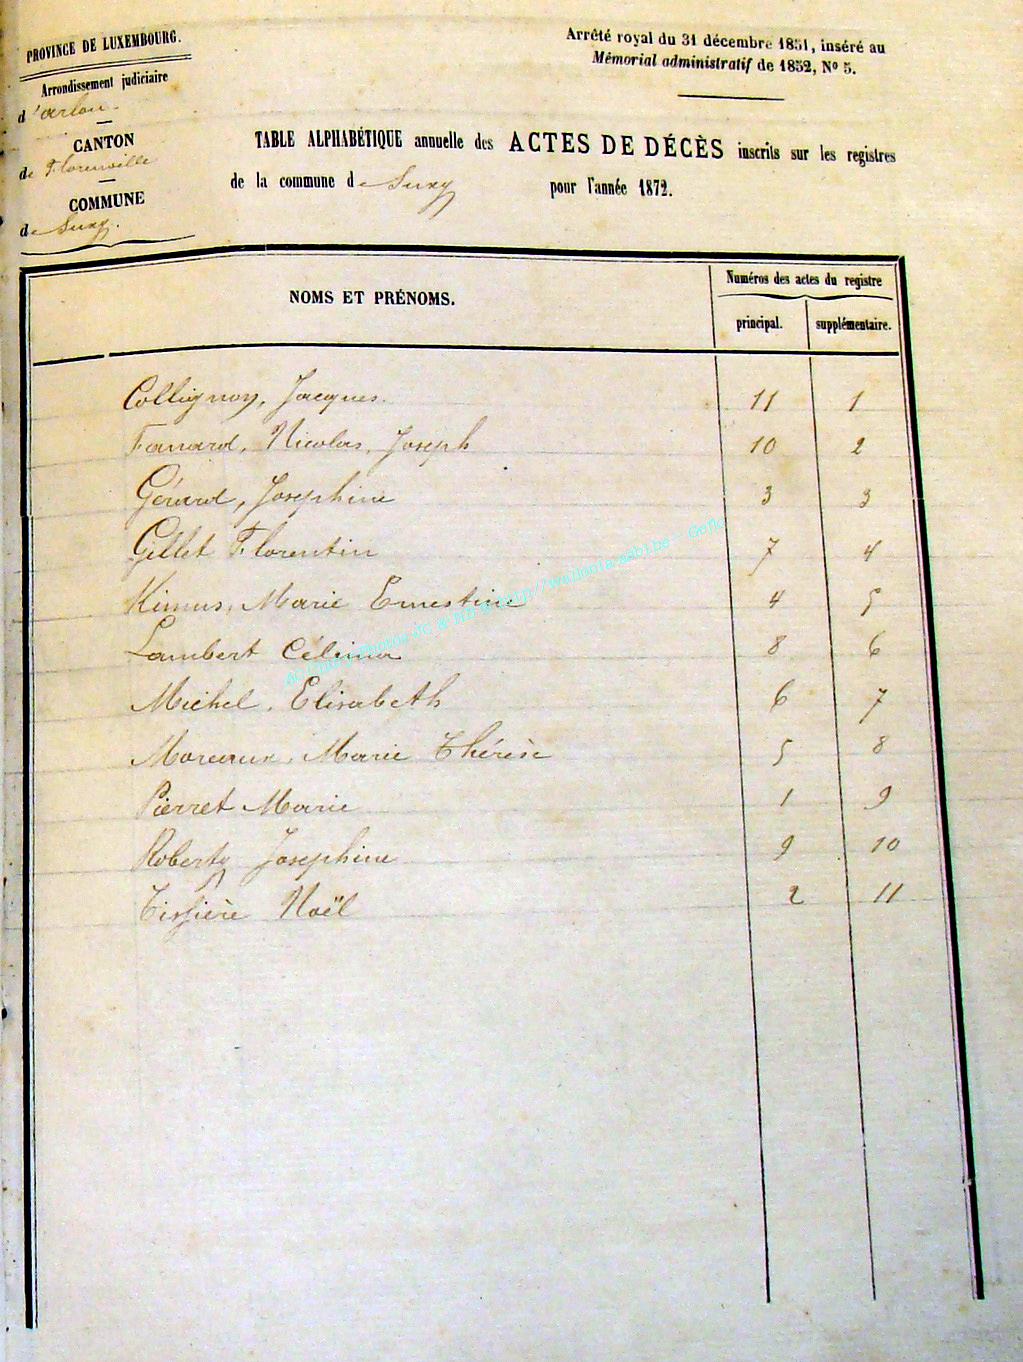 PROVINCE DE LUXEMBOURG.
Arrondissement judiciaire
d'arlon.
CANTON
de Florenville
COMMUNE
de Suxy.
Arrêté royal du 31 décembre 1851, inséré au
Mémorial administratif de 1852, No 5.
TABLE ALPHABÉTIQUE annuelle des ACTES DE DÉCÈS inscrits sur les registres
de la commune de Suxy pour l'année 1872.
NOMS ET PRÉNOMS. Numéros des actes du registre
principal. supplémentaire.
Collignon, Jacques. 11 1
Fanard, Nicolas, Joseph 10 2
Gérard, Josephine 3 3
Gillet Florentin 7 4
Kimus, Marie Ernestine 4 5
Lambert Célina 8 6
Michel, Elisabeth 6 7
Moreaux, Marie Thérèse 5 8
Pierret Marie 1 9
Roberty Josephine 9 10
Tissière Noël 2 11